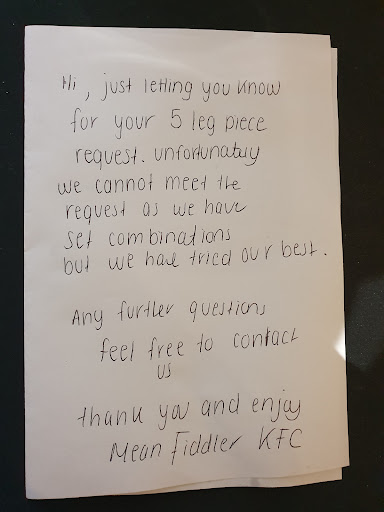 Hi, just letting you know
for your 5 leg piece
request. unfortunatuy
we cannot meet the
request as we have
set combinations
but we have tried our best.
Any further questions
feel free to contact
us
thank you and enjoy
Mean Fiddler KFC